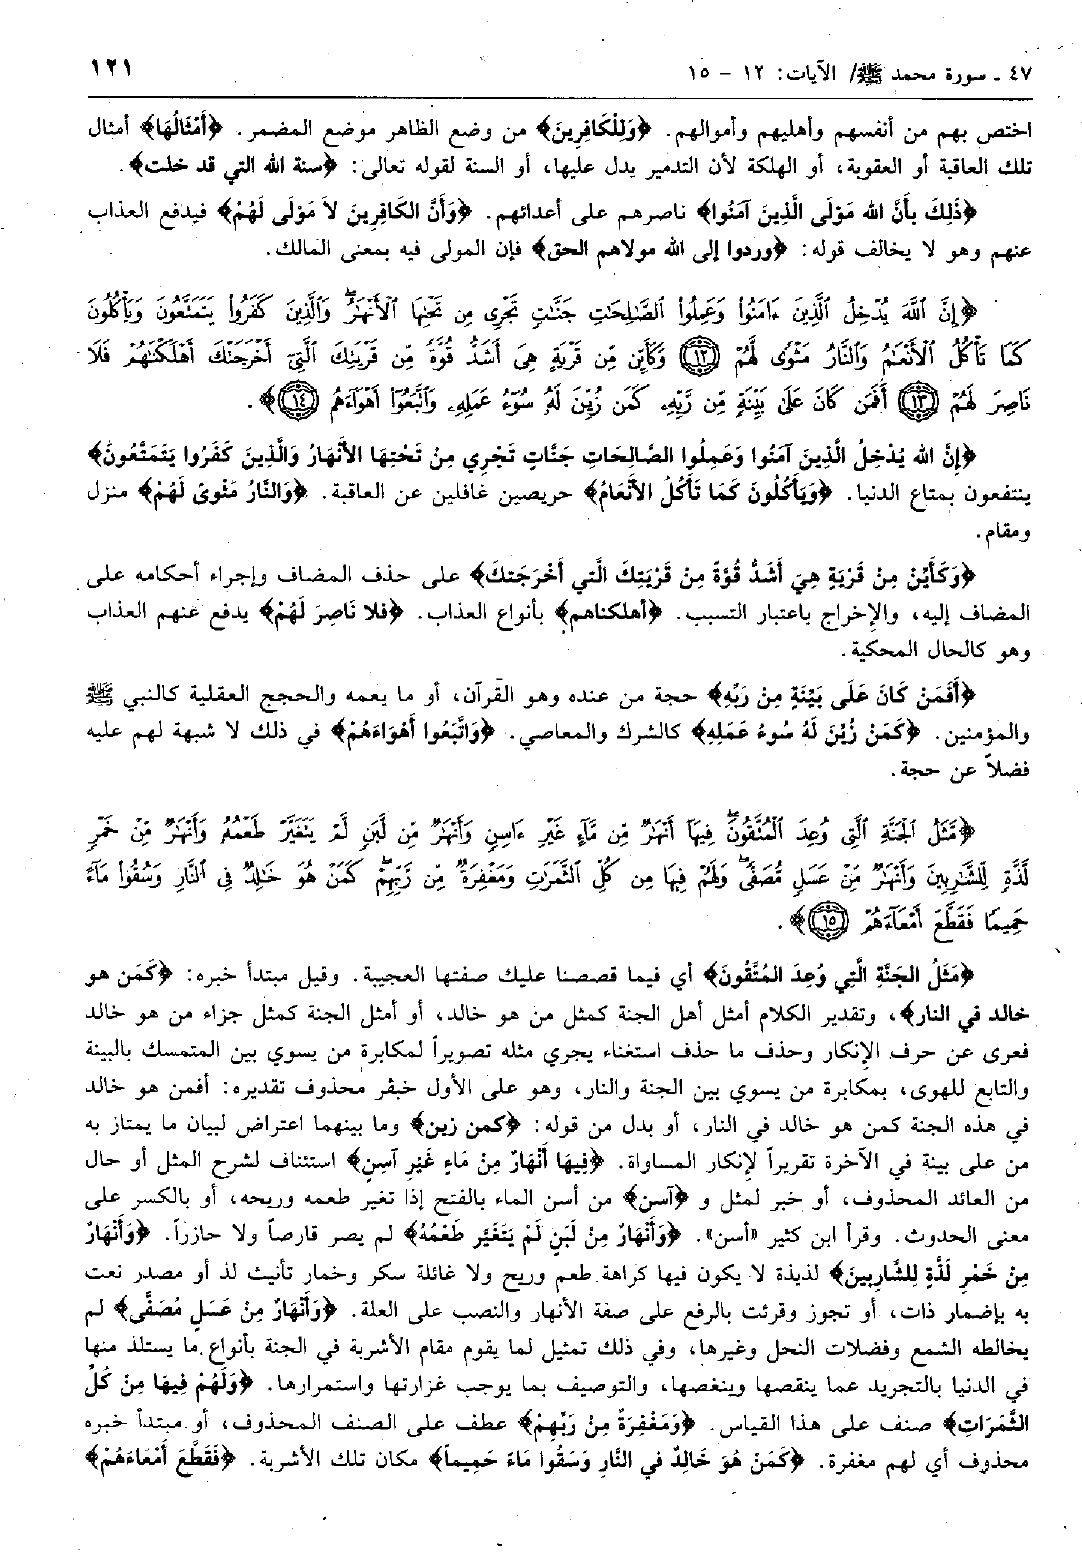 ٤٧ ـ سورة محمد ﷺ/ الآيات: ١٢ - ١٥ ١٢١
اختص بهم من أنفسهم وأهليهم وأموالهم. ﴿وَلِلْكَافِرِينَ﴾ من وضع الظاهر موضع المضمر. ﴿أَمْثَالُهَا﴾ أمثال
تلك العاقبة أو العقوبة، أو الهلكة لأن التدمير يدل عليها، أو السنة لقوله تعالى: ﴿سنة الله التي قد خلت﴾.
﴿ذَلِكَ بأنَّ الله مَوْلَى الَّذِينَ آمَنُوا﴾ ناصرهم على أعدائهم. ﴿وَأَنَّ الكَافِرِينَ لاَ مَوْلَى لَهُمْ﴾ فيدفع العذاب
عنهم وهو لا يخالف قوله: ﴿وردوا إلى الله مولاهم الحق﴾ فإن المولى فيه بمعنى المالك.
﴿إِنَّ ٱللَّهَ يُدْخِلُ ٱلَّذِينَ ءَامَنُوا۟ وَعَمِلُوا۟ ٱلصَّٰلِحَٰتِ جَنَّٰتٍ تَجْرِى مِن تَحْتِهَا ٱلْأَنْهَٰرُ ۖ وَٱلَّذِينَ كَفَرُوا۟ يَتَمَتَّعُونَ وَيَأْكُلُونَ
كَمَا تَأْكُلُ ٱلْأَنْعَٰمُ وَٱلنَّارُ مَثْوًى لَّهُمْ ﴿١٢﴾ وَكَأَيِّن مِّن قَرْيَةٍ هِىَ أَشَدُّ قُوَّةً مِّن قَرْيَتِكَ ٱلَّتِىٓ أَخْرَجَتْكَ أَهْلَكْنَٰهُمْ فَلَا
نَاصِرَ لَهُمْ ﴿١٣﴾ أَفَمَن كَانَ عَلَىٰ بَيِّنَةٍ مِّن رَّبِّهِۦ كَمَن زُيِّنَ لَهُۥ سُوٓءُ عَمَلِهِۦ وَٱتَّبَعُوٓا۟ أَهْوَآءَهُم ﴿١٤﴾﴾.
﴿إِنَّ الله يُدْخِلُ الَّذِينَ آمَنُوا وَعَمِلُوا الصَّالِحَاتِ جَنَّاتٍ تَجْرِي مِنْ تَحْتِهَا الأَنْهَارُ وَالَّذِينَ كَفَرُوا يَتَمَتَّعُونَ﴾
ينتفعون بمتاع الدنيا. ﴿وَيَأكُلُونَ كَمَا تَأكُلُ الأَنْعَامُ﴾ حريصين غافلين عن العاقبة. ﴿وَالنَّارُ مَثْوىً لَهُمْ﴾ منزل
ومقام.
﴿وَكَأَيِّنْ مِنْ قَرْيَةٍ هِيَ أَشَدُّ قُوَّةً مِنْ قَرْيَتِكَ الَّتي أَخْرَجَتكَ﴾ على حذف المضاف وإجراء أحكامه على
المضاف إليه، والإخراج باعتبار التسبب. ﴿أهلكناهم﴾ بأنواع العذاب. ﴿فلا نَاصِرَ لَهُمْ﴾ يدفع عنهم العذاب
وهو كالحال المحكية.
﴿أَفَمَنْ كَانَ عَلَى بَيْنَةٍ مِنْ رَبِّهِ﴾ حجة من عنده وهو القرآن، أو ما يعمه والحجج العقلية كالنبي ﷺ
والمؤمنين. ﴿كَمَنْ زُيِّنَ لَهُ سُوءُ عَمَلِهِ﴾ كالشرك والمعاصي. ﴿وَاتَّبَعُوا أَهْوَاءَهُمْ﴾ في ذلك لا شبهة لهم عليه
فضلاً عن حجة.
﴿مَّثَلُ ٱلْجَنَّةِ ٱلَّتِى وُعِدَ ٱلْمُتَّقُونَ ۖ فِيهَآ أَنْهَٰرٌ مِّن مَّآءٍ غَيْرِ ءَاسِنٍ وَأَنْهَٰرٌ مِّن لَّبَنٍ لَّمْ يَتَغَيَّرْ طَعْمُهُۥ وَأَنْهَٰرٌ مِّنْ خَمْرٍ
لَّذَّةٍ لِّلشَّٰرِبِينَ وَأَنْهَٰرٌ مِّنْ عَسَلٍ مُّصَفًّى ۖ وَلَهُمْ فِيهَا مِن كُلِّ ٱلثَّمَرَٰتِ وَمَغْفِرَةٌ مِّن رَّبِّهِمْ ۖ كَمَنْ هُوَ خَٰلِدٌ فِى ٱلنَّارِ وَسُقُوا۟ مَآءً
حَمِيمًا فَقَطَّعَ أَمْعَآءَهُمْ ﴿١٥﴾﴾.
﴿مَثَلُ الجَنَّةِ الَّتِي وُعِدَ المُتَّقُونَ﴾ أي فيما قصصنا عليك صفتها العجيبة. وقيل مبتدأ خبره: ﴿كَمَن هو
خالد في النار﴾، وتقدير الكلام أمثل أهل الجنة كمثل من هو خالد، أو أمثل الجنة كمثل جزاء من هو خالد
فعرى عن حرف الإنكار وحذف ما حذف استغناء يجري مثله تصويراً لمكابرة من يسوي بين المتمسك بالبينة
والتابع للهوى، بمكابرة من يسوي بين الجنة والنار، وهو على الأول خبقر محذوف تقديره: أفمن هو خالد
في هذه الجنة كمن هو خالد في النار، أو بدل من قوله: ﴿كمن زين﴾ وما بينهما اعتراض لبيان ما يمتاز به
من على بينة في الآخرة تقريراً لإنكار المساواة. ﴿فِيهَا أَنْهَارٌ مِنْ مَاءٍ غَيْرِ آسِنٍ﴾ استئناف لشرح المثل أو حال
من العائد المحذوف، أو خبر لمثل و ﴿آسن﴾ من أسن الماء بالفتح إذا تغير طعمه وريحه، أو بالكسر على
معنى الحدوث. وقرأ ابن كثير «أسن». ﴿وَأَنْهَارٌ مِنْ لَبَنٍ لَمْ يَتَغَيَّر طَعْمُهُ﴾ لم يصر قارصاً ولا حازراً. ﴿وَأَنْهَارٌ
مِنْ خَمْرٍ لَذَّةٍ لِلشَّارِبِينَ﴾ لذيذة لا يكون فيها كراهة طعم وريح ولا غائلة سكر وخمار تأنيث لذ أو مصدر نعت
به بإضمار ذات، أو تجوز وقرئت بالرفع على صفة الأنهار والنصب على العلة. ﴿وَأَنْهَارٌ مِنْ عَسَلٍ مُصَفَّى﴾ لم
يخالطه الشمع وفضلات النحل وغيرها، وفي ذلك تمثيل لما يقوم مقام الأشربة في الجنة بأنواع ما يستلذ منها
في الدنيا بالتجريد عما ينقصها وينغصها، والتوصيف بما يوجب غزارتها واستمرارها. ﴿وَلَهُمْ فِيهَا مِنْ كُلِّ
الثَّمَرَاتِ﴾ صنف على هذا القياس. ﴿وَمَغْفِرَةٌ مِنْ رَبِّهِمْ﴾ عطف على الصنف المحذوف، أو مبتدأ خبره
محذوف أي لهم مغفرة. ﴿كَمَنْ هُوَ خَالِدٌ في النَّارِ وَسَقُوا مَاءً حَمِيماً﴾ مكان تلك الأشربة. ﴿فَقَطَّعَ أَمْعَاءَهُمْ﴾